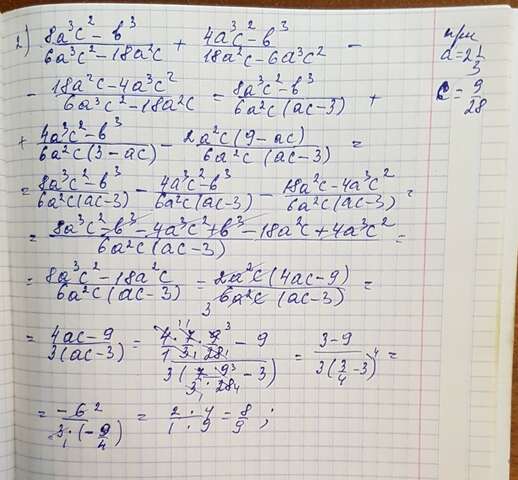 2) (8a³c² - b³)/(6a³c² - 18a²c) + (4a³c² - b³)/(18a²c - 6a³c²) -
при a = 2 1/3
c = 9/28
- (18a²c - 4a³c²)/(6a³c² - 18a²c) = (8a³c² - b³)/(6a²c(ac-3)) +
+ (4a³c² - b³)/(6a²c(3-ac)) - (2a²c(9-ac))/(6a²c(ac-3)) =
= (8a³c² - b³)/(6a²c(ac-3)) - (4a³c² - b³)/(6a²c(ac-3)) - (18a²c - 4a³c²)/(6a²c(ac-3)) =
= (8a³c² - b³ - 4a³c² + b³ - 18a²c + 4a³c²)/(6a²c(ac-3)) =
= (8a³c² - 18a²c)/(6a²c(ac-3)) = (2a²c(4ac-9))/(6a²c(ac-3)) =
= (4ac-9)/(3(ac-3)) = (4·7·9/(1·3·28) - 9)/(3(7·9/(3·28) - 3)) = (3-9)/(3(3/4 - 3)) =
= (-6)/(3·(-9/4)) = (2·4)/(1·9) = 8/9 ;